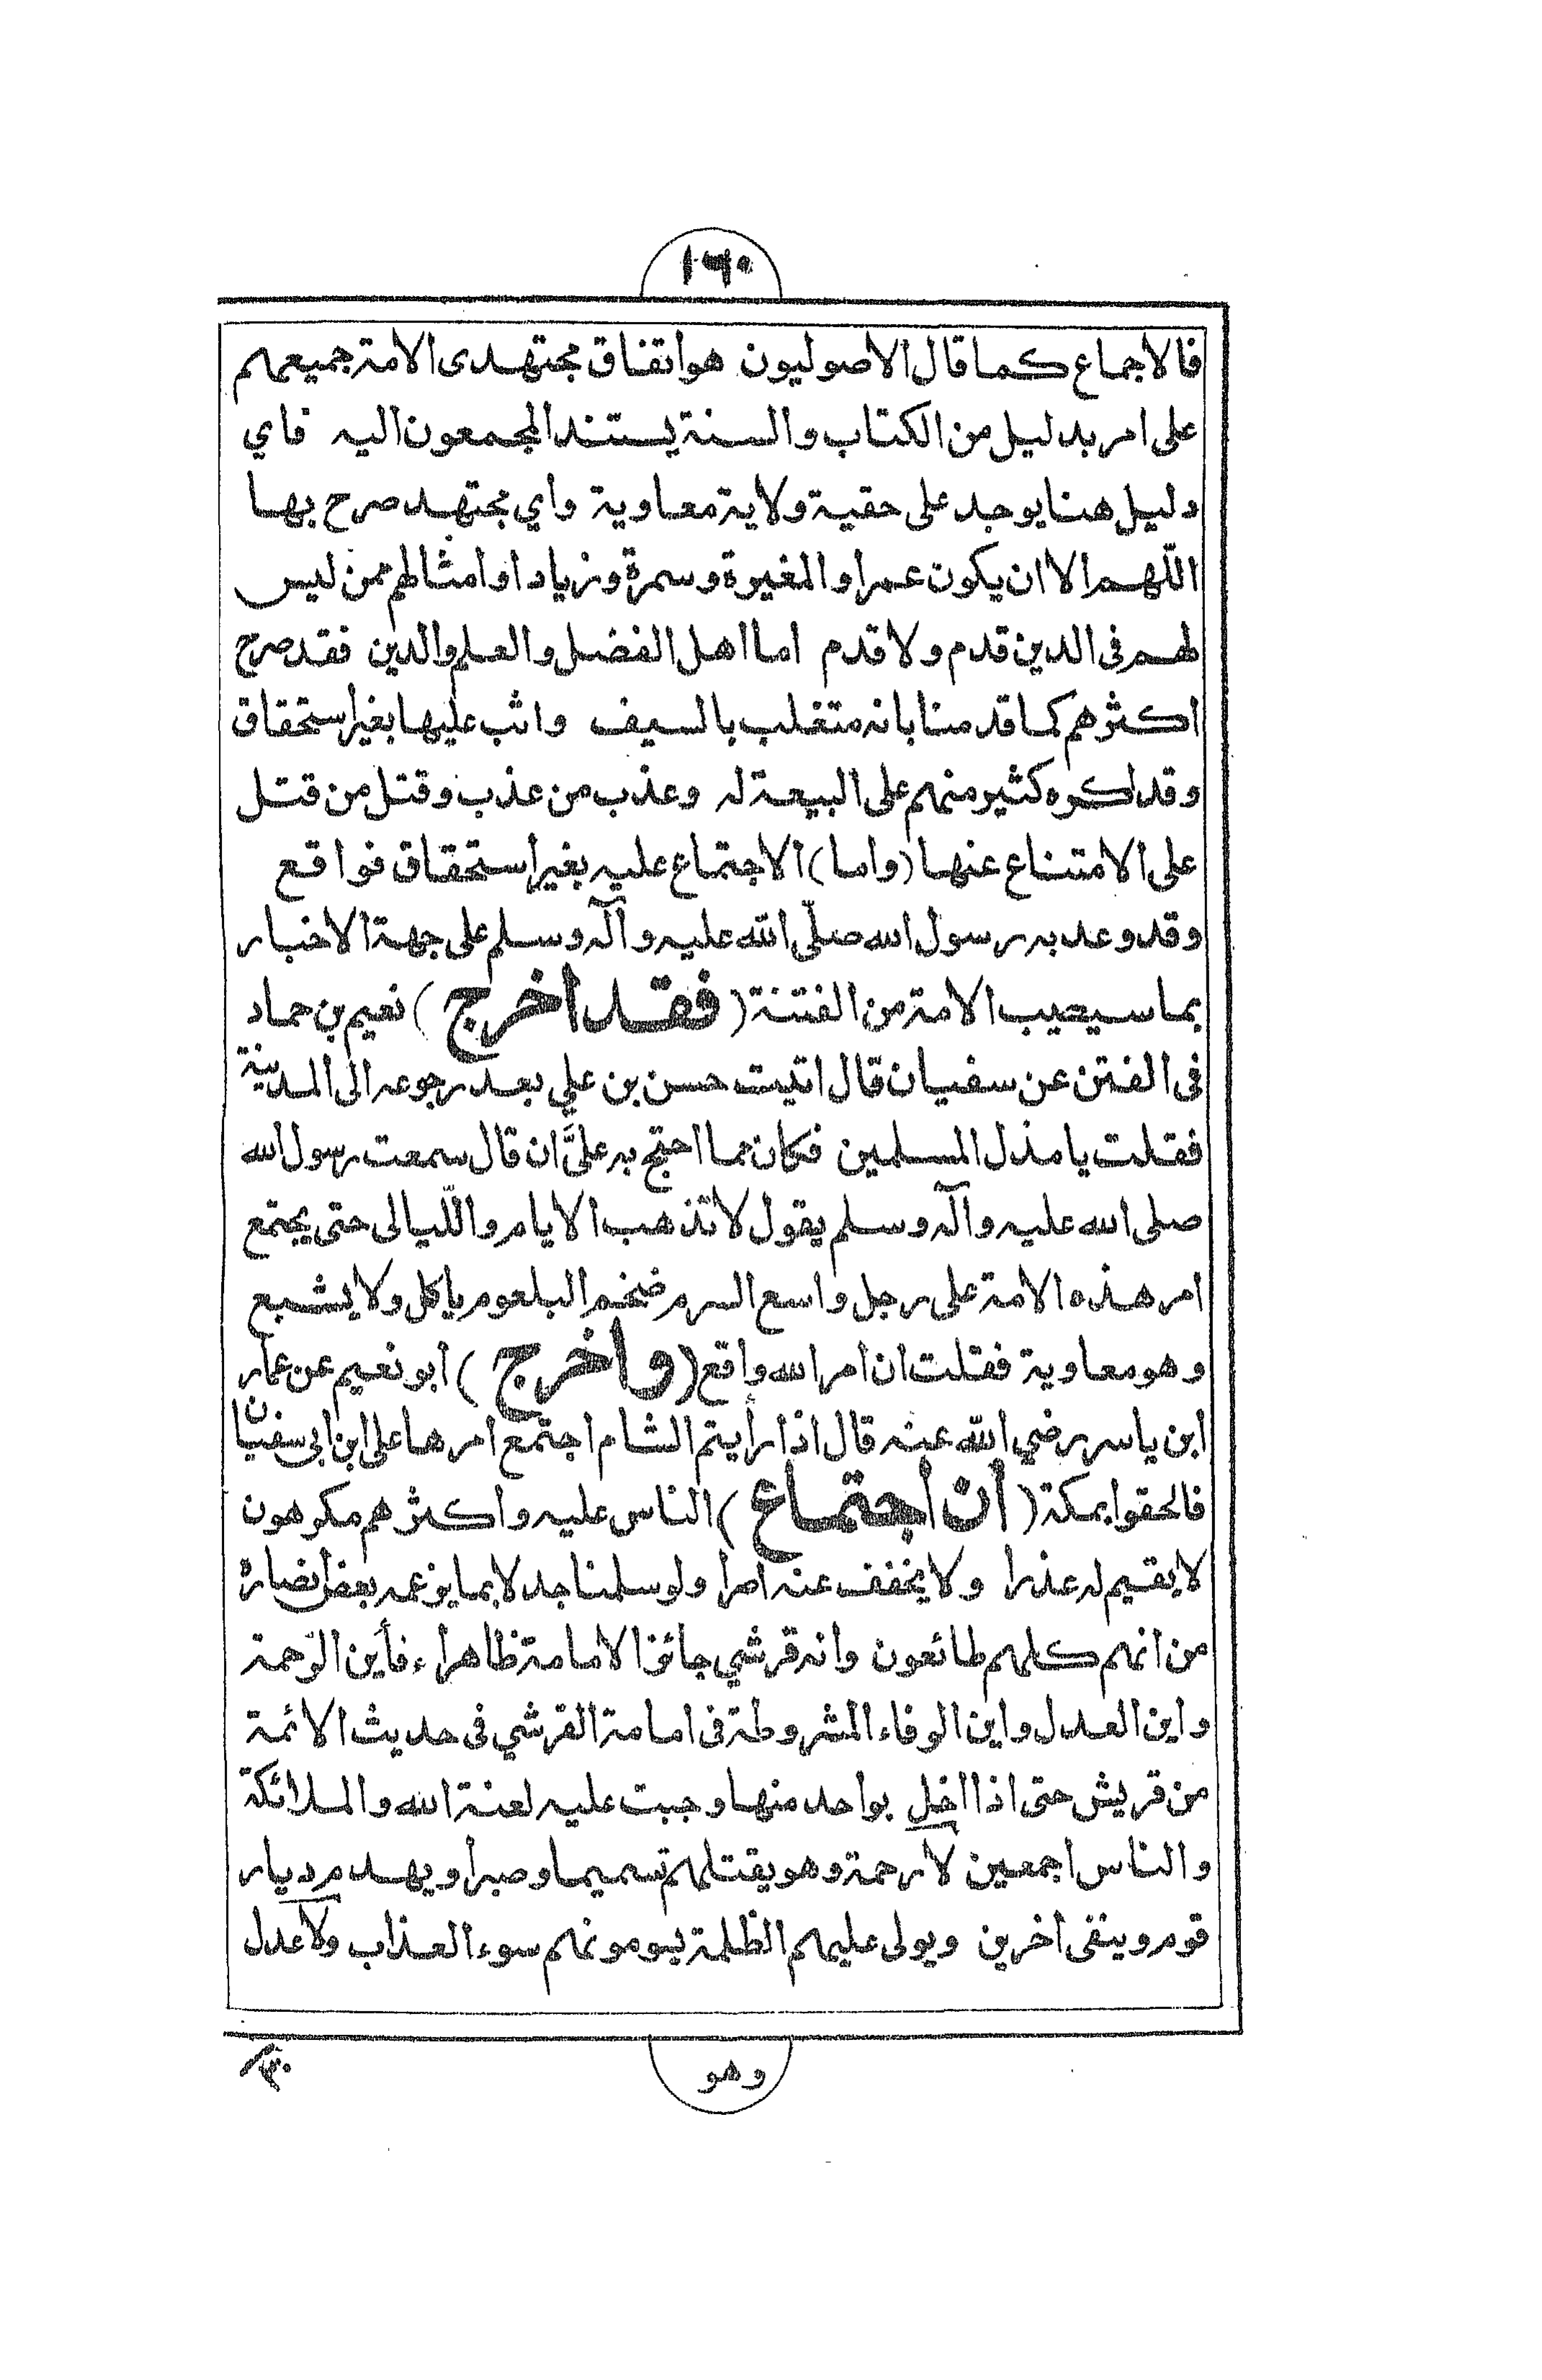 ١٦٠
فالاجماع كما قال الاصوليون هو اتفاق مجتهدى الامة جميعهم
على امر بدليل من الكتاب والسنة يستند المجمعون اليه فاي
دليل هنا يوجد على حقية ولاية معاوية واي مجتهد صرح بها
اللّهم الا ان يكون عمرا والمغيرة وسمرة وزيادا وامثالهم ممن ليس
لهم فى الدين قدم ولا قدم اما اهل الفضل والعلم والدين فقد صرح
اكثرهم كما قدمنا بانه متغلب بالسيف واثب عليها بغير استحقاق
وقد اكره كثير منهم على البيعة له وعذب من عذب وقتل من قتل
على الامتناع عنها (واما) الاجتماع عليه بغير استحقاق فواقع
وقد وعد به رسول الله صلّى الله عليه وآله وسلم على جهة الاخبار
بما سيصيب الامة من الفتنة (فقد أخرج) نعيم بن حماد
فى الفتن عن سفيان قال اتيت حسن بن علي بعد رجوعه الى المدينة
فقلت يا مذل المسلمين فكان مما احتج به عليَّ ان قال سمعت رسول الله
صلى الله عليه وآله وسلم يقول لا تذهب الايام واللّيالى حتى يجتمع
امر هذه الامة على رجل واسع السرم ضخم البلعوم ياكل ولا يشبع
وهو معاوية فقلت ان امر الله واقع (وأخرج) ابو نعيم عن عمار
ابن ياسر رضي الله عنه قال اذا رأيتم الشام اجتمع امرها على ابن ابى سفيان
فالحقوا بمكة (ان اجتماع) الناس عليه واكثرهم مكرهون
لا يقيم له عذرا ولا يخفف عنه اصرا ولو سلمنا جدلا بما يزعمه بعض انصاره
من انهم كلهم طائعون وانه قرشي جائز الامامة ظاهراً، فأين الرّحمة
واين العدل واين الوفاء المشروطة فى امامة القرشي فى حديث الائمة
من قريش حتى اذا اخل بواحد منها وجبت عليه لعنة الله والملائكة
والناس اجمعين لا رحمة وهو يقتلهم تسميما وصبرا ويهدم ديار
قوم وينفى آخرين ويولى عليهم الظلمة يسومونهم سوء العذاب ولا عدل
وهو